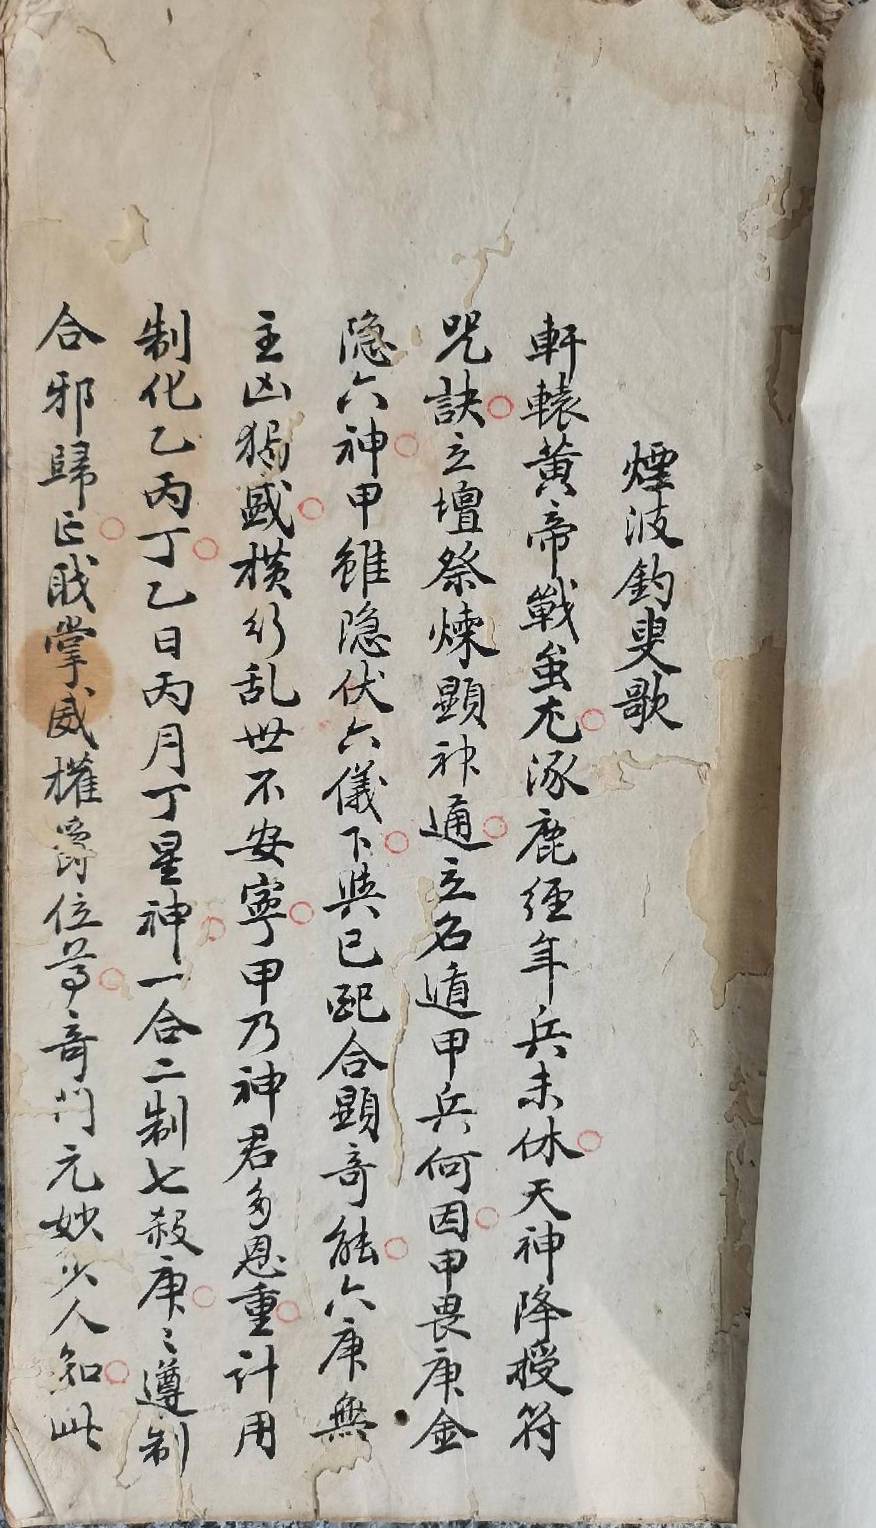 煙波釣叟歌
軒轅黄帝戰蚩尤涿鹿經年兵未休天神降授符
咒訣立壇祭煉顯神通立名遁甲兵何因甲畏庚金
隐六神甲雖隐伏六儀下與己配合顯奇能六庚無
主凶猖盛横行乱世不安寧甲乃神君多恩重計用
制化乙丙丁乙日丙月丁星神一合二制七殺庚〻遵制
合邪歸正戝掌威權爵位尊奇门元妙少人知此